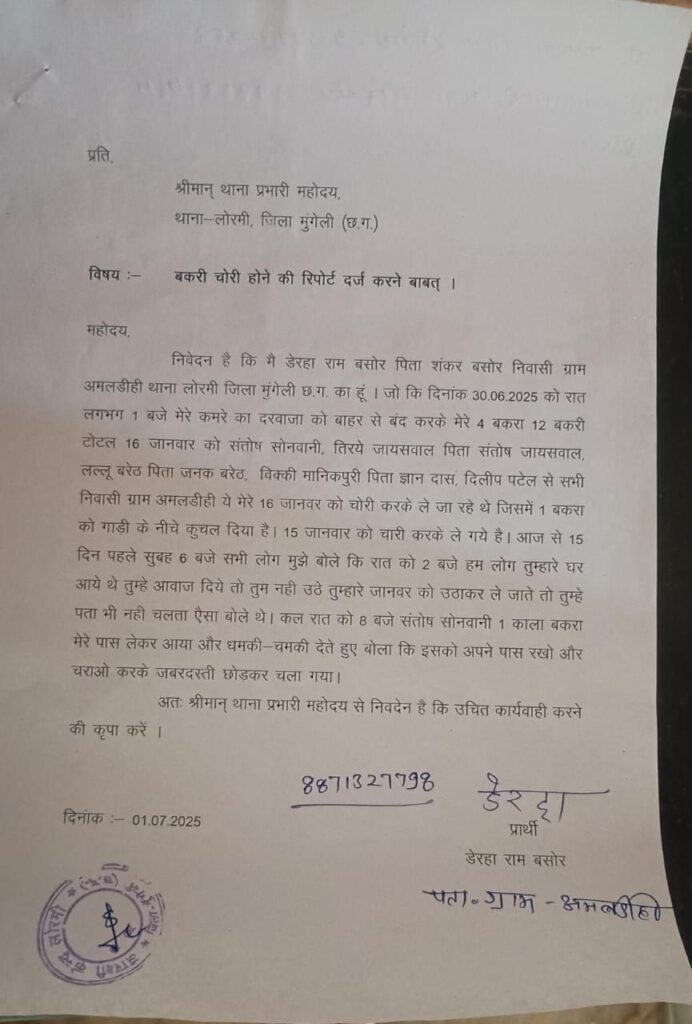 प्रति,
श्रीमान् थाना प्रभारी महोदय,
थाना–लोरमी, जिला मुंगेली (छ.ग.)
विषय :– बकरी चोरी होने की रिपोर्ट दर्ज करने बाबत् ।
महोदय,
निवेदन है कि मै डेरहा राम बसोर पिता शंकर बसोर निवासी ग्राम
अमलडीही थाना लोरमी जिला मुंगेली छ.ग. का हूं । जो कि दिनांक 30.06.2025 को रात
लगभग 1 बजे मेरे कमरे का दरवाजा को बाहर से बंद करके मेरे 4 बकरा 12 बकरी
टोटल 16 जानवार को संतोष सोनवानी, तिरये जायसवाल पिता संतोष जायसवाल,
लल्लू बरेठ पिता जनक बरेठ, विक्की मानिकपुरी पिता ज्ञान दास, दिलीप पटेल से सभी
निवासी ग्राम अमलडीही ये मेरे 16 जानवर को चोरी करके ले जा रहे थे जिसमें 1 बकरा
को गाडी के नीचे कुचल दिया है। 15 जानवार को चारी करके ले गये है। आज से 15
दिन पहले सुबह 6 बजे सभी लोग मुझे बोले कि रात को 2 बजे हम लोग तुम्हारे घर
आये थे तुम्हे आवाज दिये तो तुम नही उठे तुम्हारे जानवर को उठाकर ले जाते तो तुम्हे
पता भी नही चलता ऐसा बोले थे। कल रात को 8 बजे संतोष सोनवानी 1 काला बकरा
मेरे पास लेकर आया और धमकी–चमकी देते हुए बोला कि इसको अपने पास रखो और
चराओ करके जबरदस्ती छोड़कर चला गया।
अतः श्रीमान् थाना प्रभारी महोदय से निवदेन है कि उचित कार्यवाही करने
की कृपा करें ।
8871327798
डेरहा
दिनांक :– 01.07.2025
प्रार्थी
डेरहा राम बसोर
पता. ग्राम - अमलडीही
आरक्षी केन्द्र लोरमी